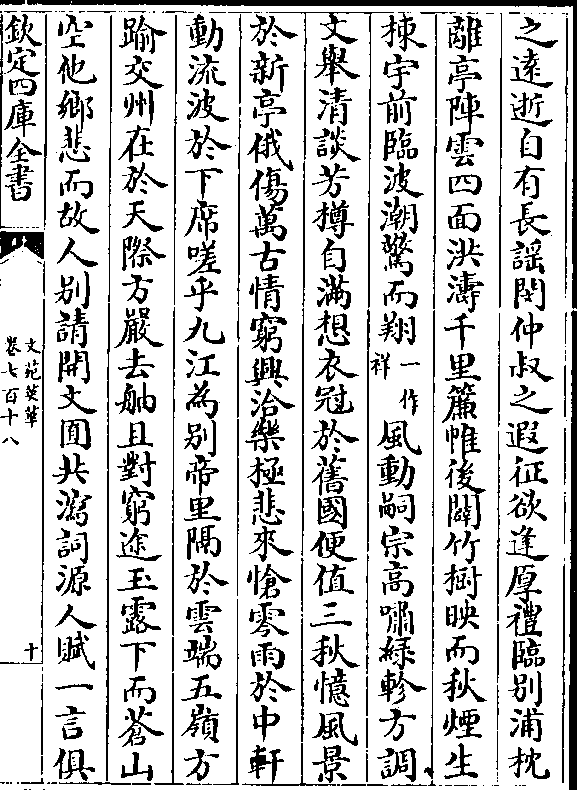 之遠逝自有長謡閔仲叔之遐征欲逢厚禮臨别浦枕
離亭陣雲四面洪濤千里簾帷後闢竹樹映而秋煙生
棟宇前臨波潮驚而翔一作祥風動嗣宗高嘯緑軫方調
文舉清談芳樽自滿想衣冠於舊國便值三秋憶風景
於新亭俄傷萬古情窮興洽樂極悲來愴零雨於中軒
動流波於下席嗟乎九江為别帝里隔於雲端五嶺方
踰交州在於天際方嚴去舳且對窮途玉露下而蒼山
空他鄉悲而故人别請開文囿共瀉詞源人賦一言俱
欽定四庫全書
文苑英華
卷七百十八
十